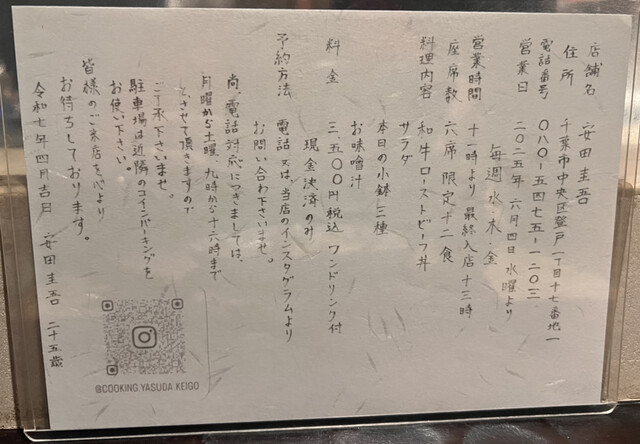 店舗名 安田圭吾
住所 千葉市中央区登戸一丁目十七番地一
電話番号 〇八〇-五四七五-一二〇三
営業日 二〇二五年 六月四日 水曜より
毎週 水・木・金
営業時間 十一時より 最終入店十三時
座席数 六席 限定十二食
料理内容 和牛ローストビーフ丼
サラダ
本日の小鉢 三種
お味噌汁
料金 三、五〇〇円税込 ワンドリンク付
現金決済のみ
予約方法 電話又は、当店のインスタグラムより
お問い合わ下さいませ。
尚、電話対応につきましては、
月曜から土曜、九時から十六時まで
とさせて頂きますので
ご了承下さいませ。
駐車場は近隣のコインパーキングを
お使い下さい。
皆様のご来店を心より
お待ちしております。
令和七年四月吉日 安田圭吾 二十五歳
@COOKING.YASUDA.KEIGO